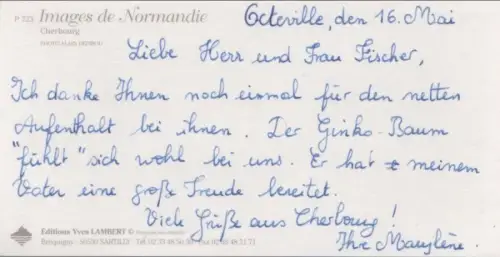 P 223 Images de Normandie
Cherbourg
Octeville, den 16. Mai
Liebe Herr und Frau Fischer,
Ich danke Ihnen noch einmal für den netten
Aufenthalt bei ihnen. Der Ginko-Baum
"fühlt" sich wohl bei uns. Er hat meinem
Vater eine große Freude bereitet.
Viele Grüße aus Cherbourg!
Ihre Marylène.
Editions Yves LAMBERT ©